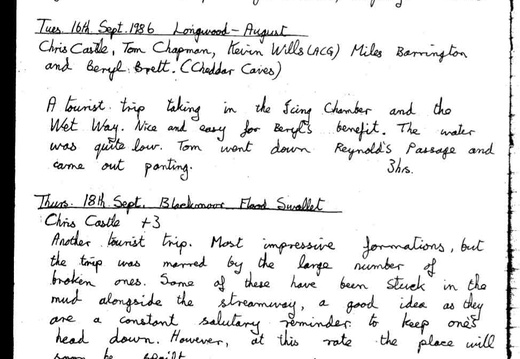 Tues. 16th Sept. 1986 Longwood - August
Chris Castle, Tom Chapman, Kevin Wills (ACG) Miles Barrington
and Beryl Brett. (Cheddar Caves)
A tourist trip taking in the Icing Chamber and the
Wet Way. Nice and easy for Beryl's benefit. The water
was quite low. Tom went down Reynold's Passage and
came out panting. 3hrs.
Thurs. 18th Sept. Blackmoor Flood Swallet
Chris Castle +3
Another tourist trip. Most impressive formations, but
the trip was marred by the large number of
broken ones. Some of these have been stuck in the
mud alongside the streamway, a good idea as they
are a constant salutary reminder to keep one's
head down. However, at this rate the place will
soon be spoilt